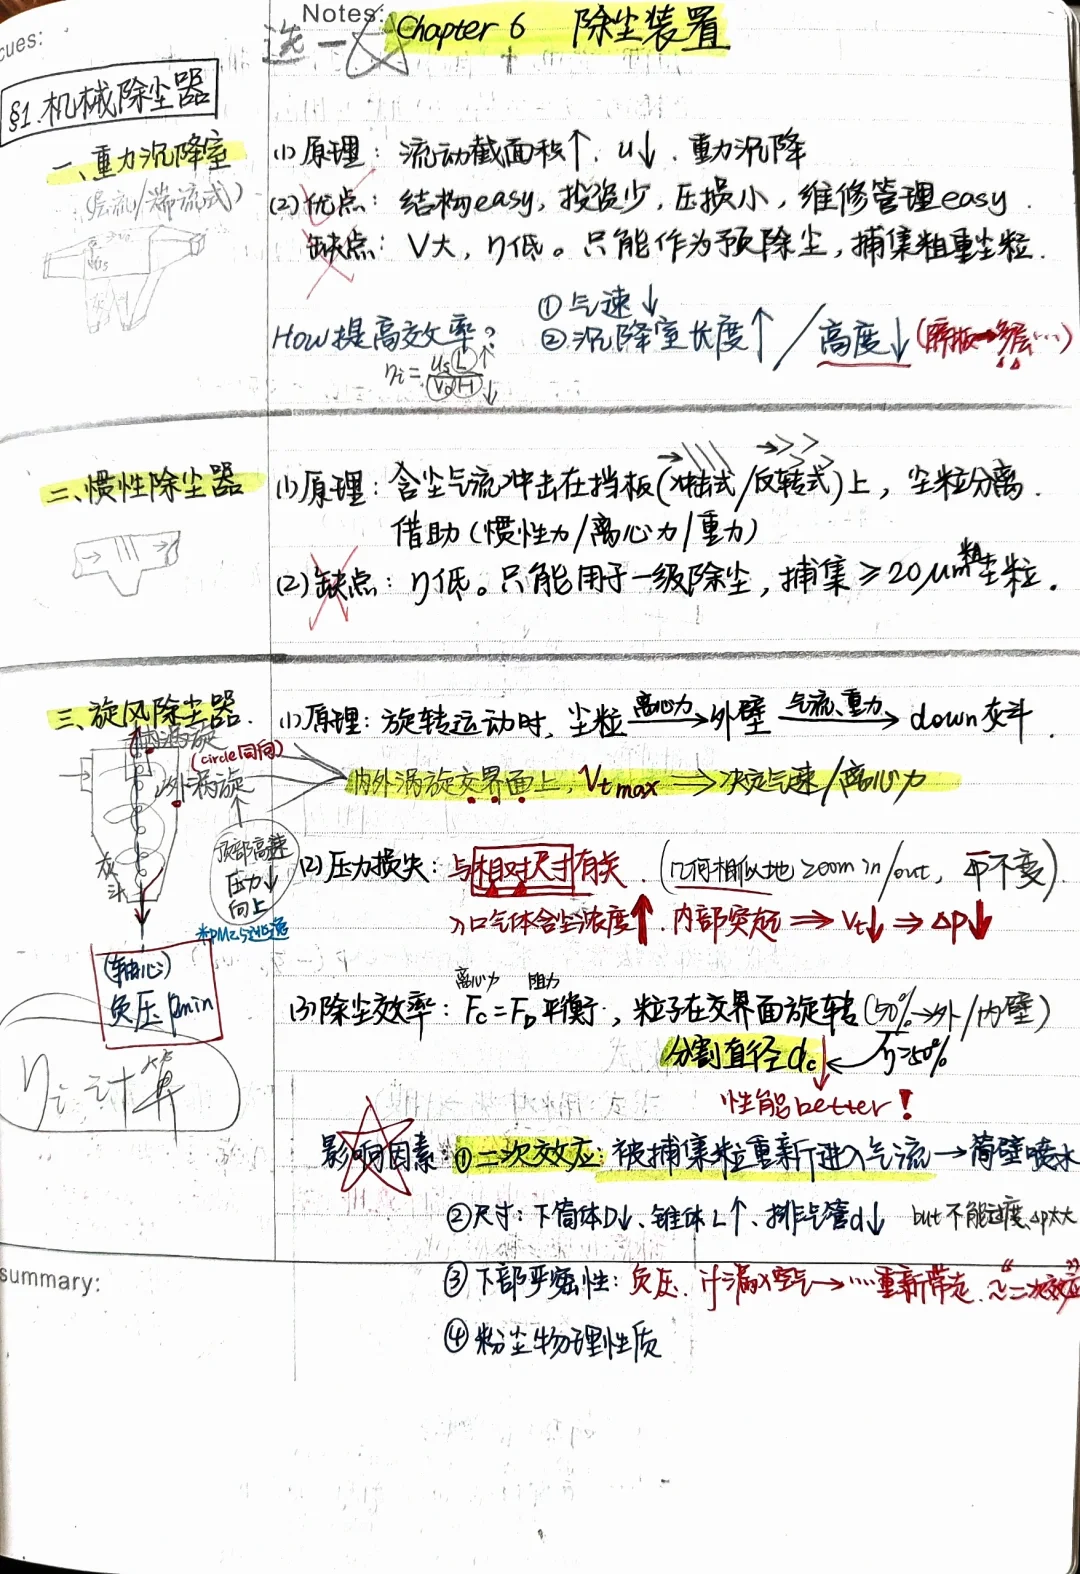 cues:
Notes:
选一
Chapter 6 除尘装置
§1.机械除尘器
一、重力沉降室
(层流/湍流式)
(1)原理：流动截面积↑、u↓、重力沉降
(2)优点：结构easy，投资少，压损小，维修管理easy.
缺点：V大，η低。只能作为预除尘，捕集粗重尘粒.
How提高效率？
①气速↓
②沉降室长度↑/高度↓(隔板→多层…)
ηi=usL↑/v0H↓
二、惯性除尘器
(1)原理：含尘气流冲击在挡板(冲击式/反转式)上，尘粒分离.
借助(惯性力/离心力/重力)
(2)缺点：η低。只能用于一级除尘，捕集≥20μm粗尘粒.
三、旋风除尘器.
(1)原理：旋转运动时，尘粒 离心力→外壁 气流、重力→down灰斗.
内涡旋
(circle同向)
外涡旋
内外涡旋交界面上，Vt max ⇒决定气速/离心力
灰斗
顶部高速
压力↓
向上
*PM2.5逃逸
(2)压力损失：与相对尺寸有关.(几何相似地zoom in/out，平不变).
入口气体含尘浓度↑，内部突起⇒Vt↓⇒ΔP↓
(轴心)
负压Pmin
(3)除尘效率：离心力Fc=阻力FD平衡，粒子在交界面旋转(50%→外/内壁)
分割直径dc↓←η=50%
性能better！
ηi计算
影响因素
①二次效应：被捕集粒重新进入气流→筒壁喷水
②尺寸：下筒体D↓、锥体L↑、排气管d↓ but不能过度、Δp太大
summary:
③下部严密性：负压、汁漏入空气→…重新带走，≈“二次效应”
④粉尘物理性质